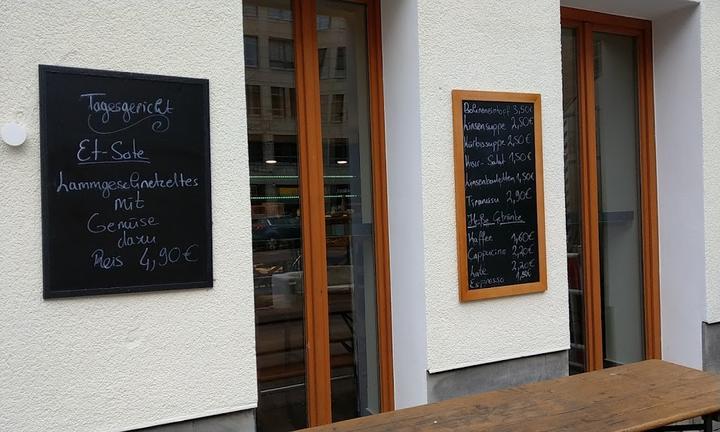 Tagesgericht
Et-Sote
Lammgeschnetzeltes
mit
Gemüse
dazu
Reis 4,90€
Bohneneintopf 3,50€
Linsensuppe 2,50€
Kürbissuppe 2,50€
Kısır-Salat 1,50€
Linsenbouletten 1,50€
Tiramisu 2,90€
Heiße Getränke
Kaffee 1,60€
Cappucino 2,20€
Late 2,20€
Espresso 1,50€